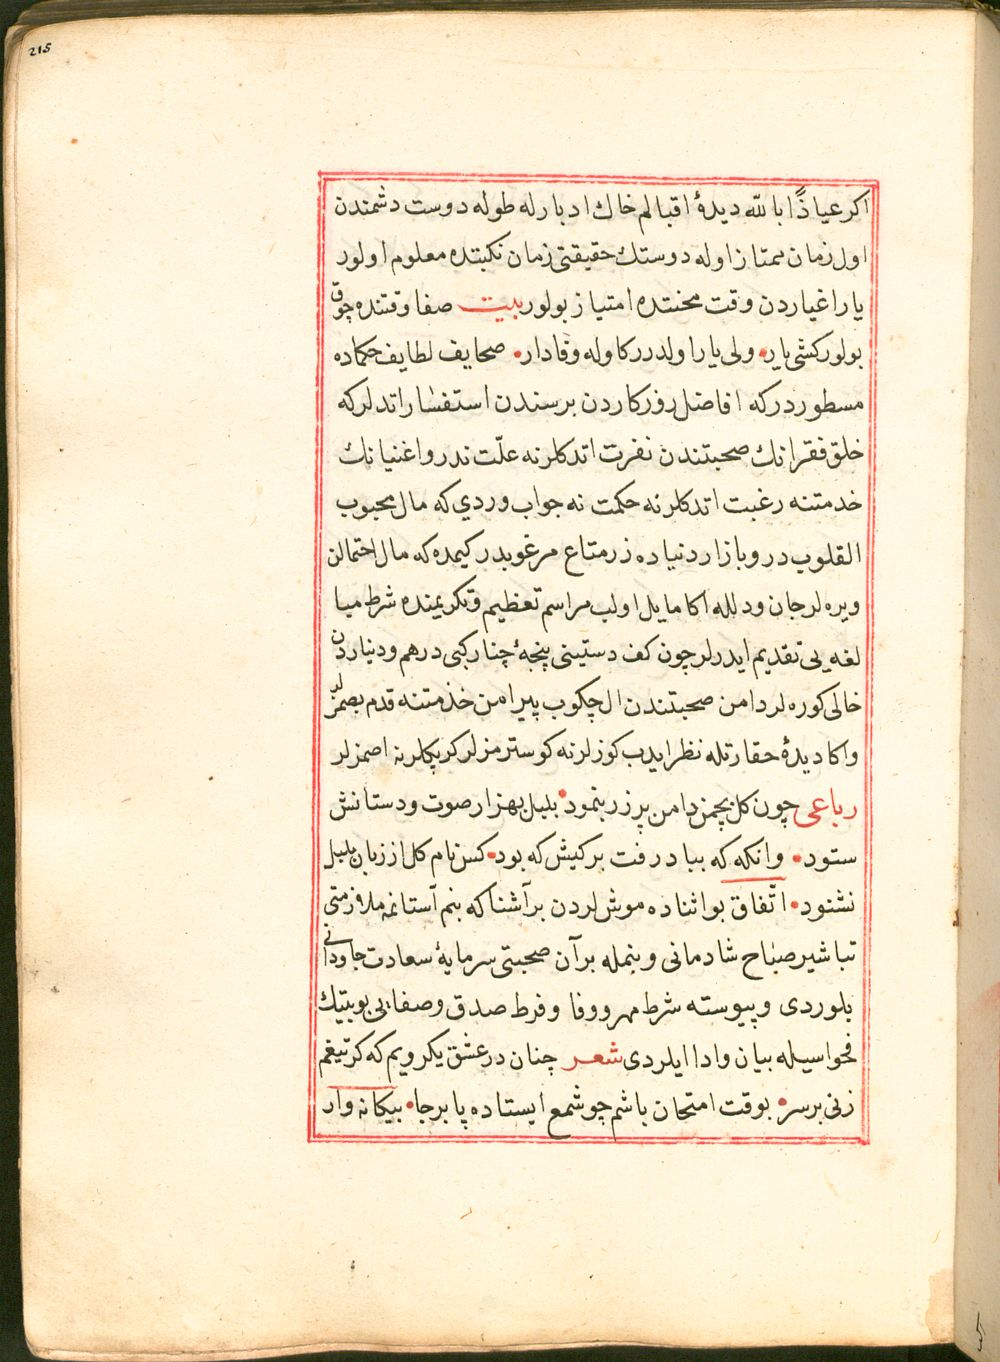 215
اكر عياذًا بالله ديدهٔ اقبالم خاك ادبارله طوله دوست دشمندن
اول زمان ممتاز اوله دوستك حقيقتى زمان نكبتده معلوم اولور
يار اغياردن وقت محنتده امتياز بولور بيت صفا وقتنده چوق
بولور كشى يار • ولى يار اولدر كاوله وفادار • صحايف لطايف حكماده
مسطوردركه افاضل روزكاردن برسندن استفسار اتدلركه
خلق فقرانك صحبتندن نفرت اتدكلرنه علّت ندر و اغنيانك
خدمتنه رغبت اتدكلرنه حكمت نه جواب وردي كه مال محبوب
القلوبدر و بازار دنياده زر متاع مرغوبدر كيمده كه مال احتمالن
ويره لر جان ودلله اكا مايل اولب مراسم تعظيم وتكريمنده شرط مبا
لغه يى تقديم ايدرلر چون كف دستينى پنجهٔ چنار كبى درهم ودينار دن
خالى كوره لر دامن صحبتندن ال چكوب پيرامن خذمتنه قدم بصمزلر
واكا ديدهٔ حقارتله نظر ايدب كوزلرنه كوسترمزلر كرپكلرنه اصمزلر
رباعى چون كل بچمن دامن پر زر بنمود • بلبل بهزار صوت ودستانش
ستود • وانكه كه بباد رفت بركيش كه بود • كس نام كل از زبان بلبل
نشنود • اتّفاق بو اثناده موش لردن بر آشناكه بنم آستانمه ملازمتى
تباشير صباح شادمانى و بنمله برآن صحبتى سرمايهٔ سعادت جاودانى
بلوردى و پيوسته شرط مهر و وفا و فرط صدق وصفايى بو بيتيك
فحواسيله بيان وادا ايلردى شعر چنان در عشق يكرويم كه كر تيغم
زنى بر سر • بوقت امتحان باشم چو شمع ايستاده پا برجا • بيكانه وار